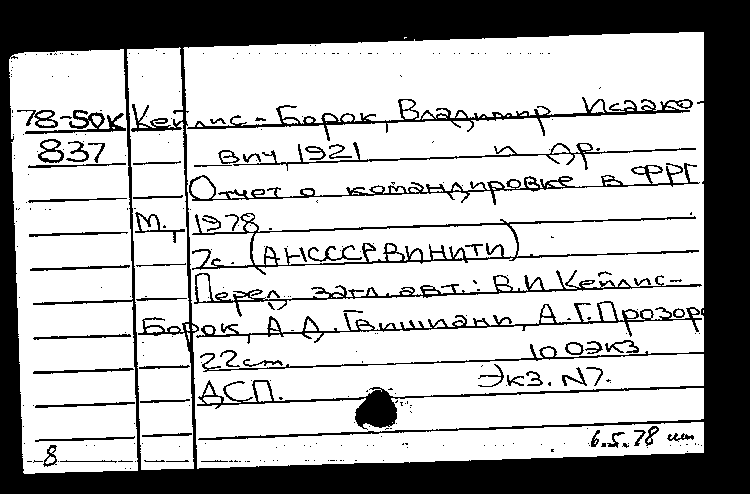 78-50к Кейлис-Борок, Владимир Исаако-
837 вич, 1921 и др.
Отчет о командировке в ФРГ.
М., 1978.
7с. (АНСССР.ВИНИТИ).
Перед загл. авт.: В.И.Кейлис-
Борок, А.Д.Гвишиани, А.Г.Прозоро
22см. 100экз.
ДСП. Экз. N7.
6.5.78
8